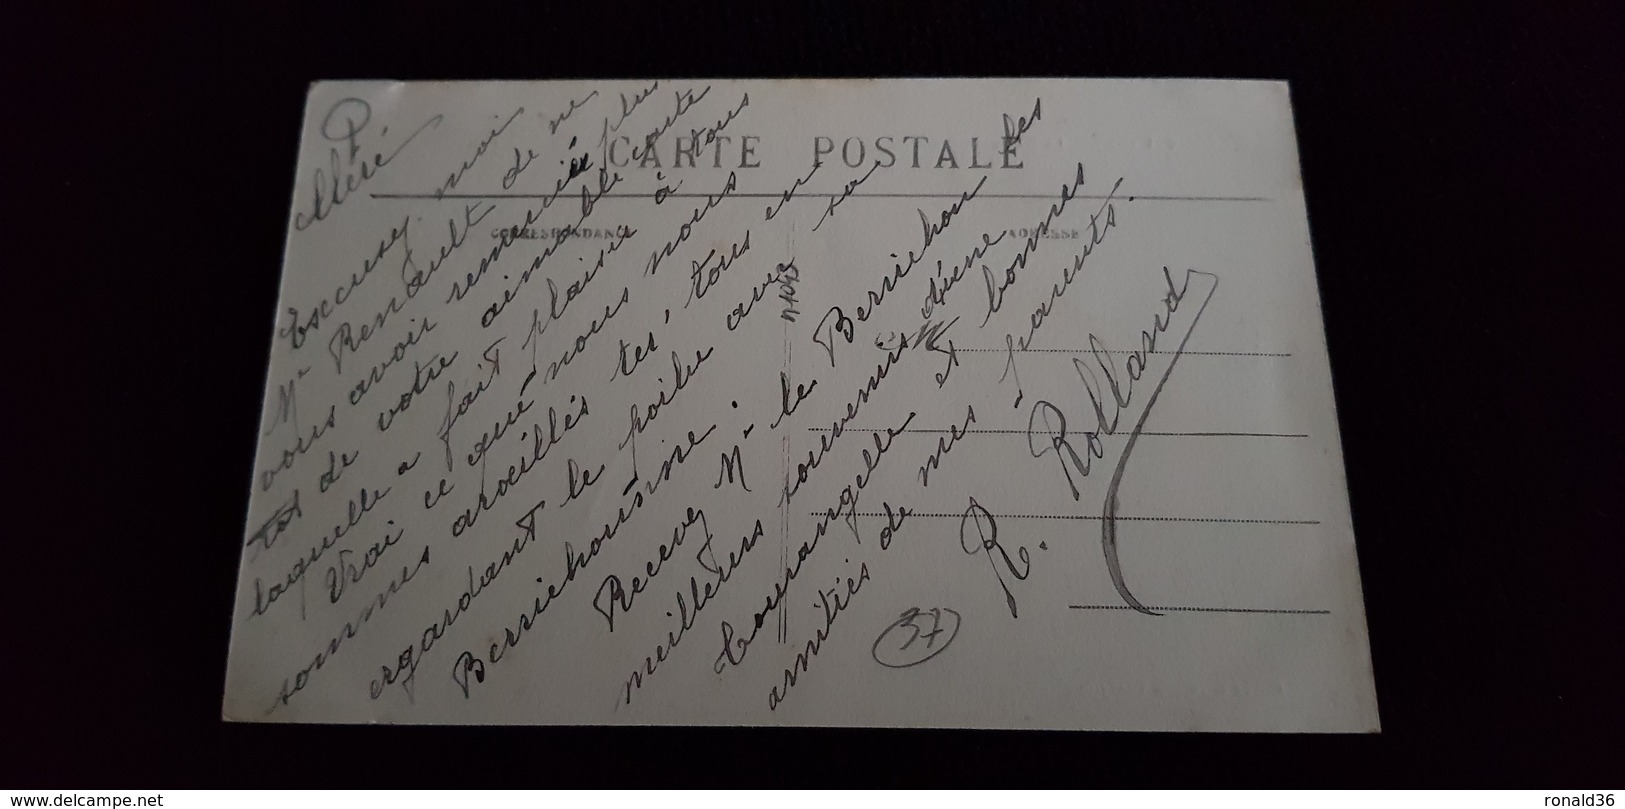 CARTE POSTALE
CORRESPONDANCE
ADRESSE
Cléré
Excusez moi
Mr Renault de ne
vous avoir remercié plus
tot de votre aimable carte
laquelle a fait plaisir à tous
Vrai ce que nous nous
sommes aroeillés tes' tous en
ergardant le poilu avec sa
Berrichonnne!
Recevez Mr le Berrichon les
meilleurs souvenirs d'une
Tourangelle et bonnes
amitiés de mes parents.
R. Rolland
37
ronald36